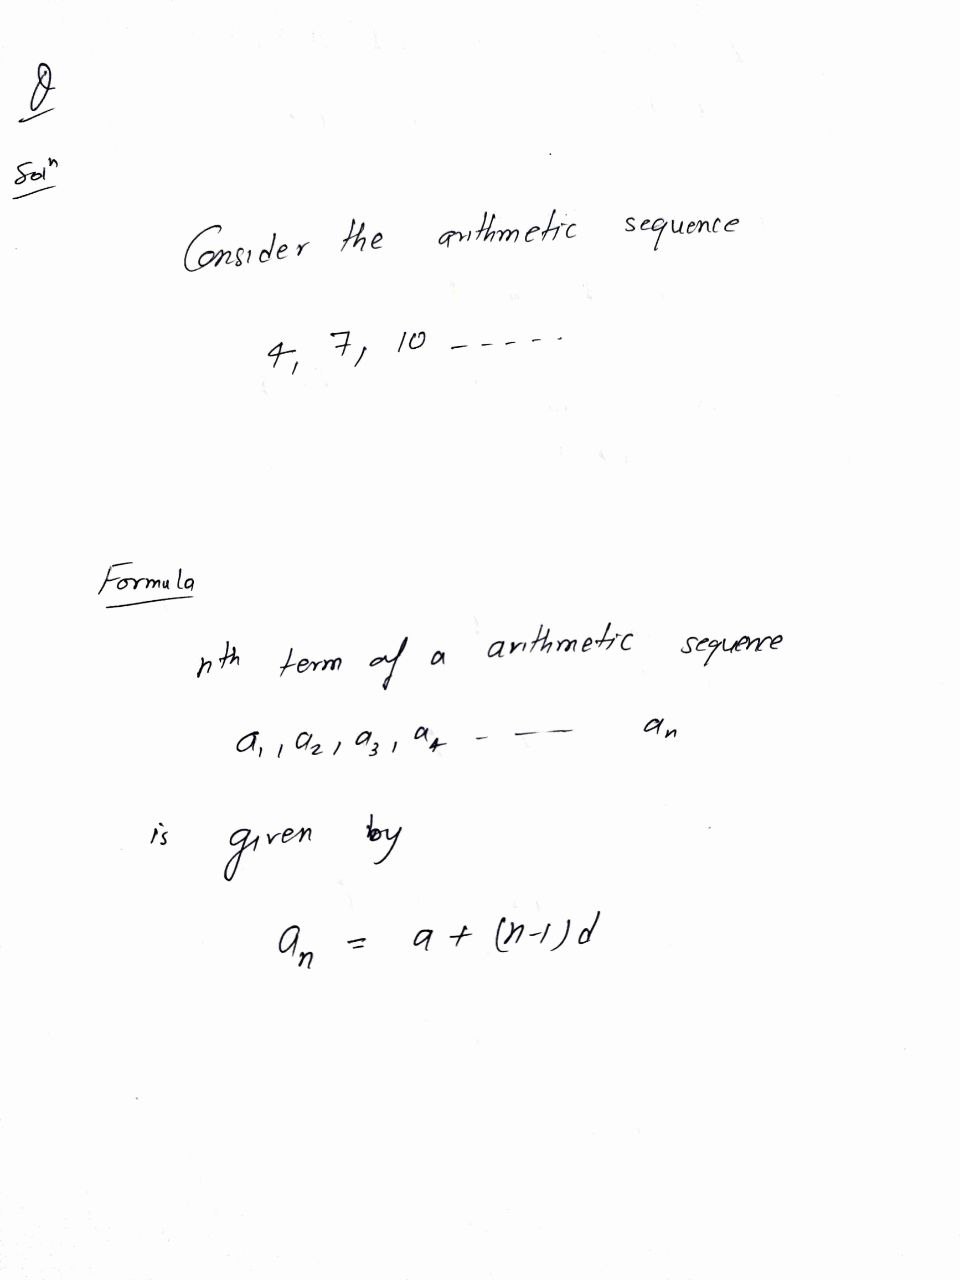 Q
Solⁿ
Consider the arithmetic sequence
4, 7, 10 -----
Formula
nth term of a arithmetic sequence
a₁, a₂, a₃, a₄ - -- aₙ
is given by
aₙ = a + (n-1)d